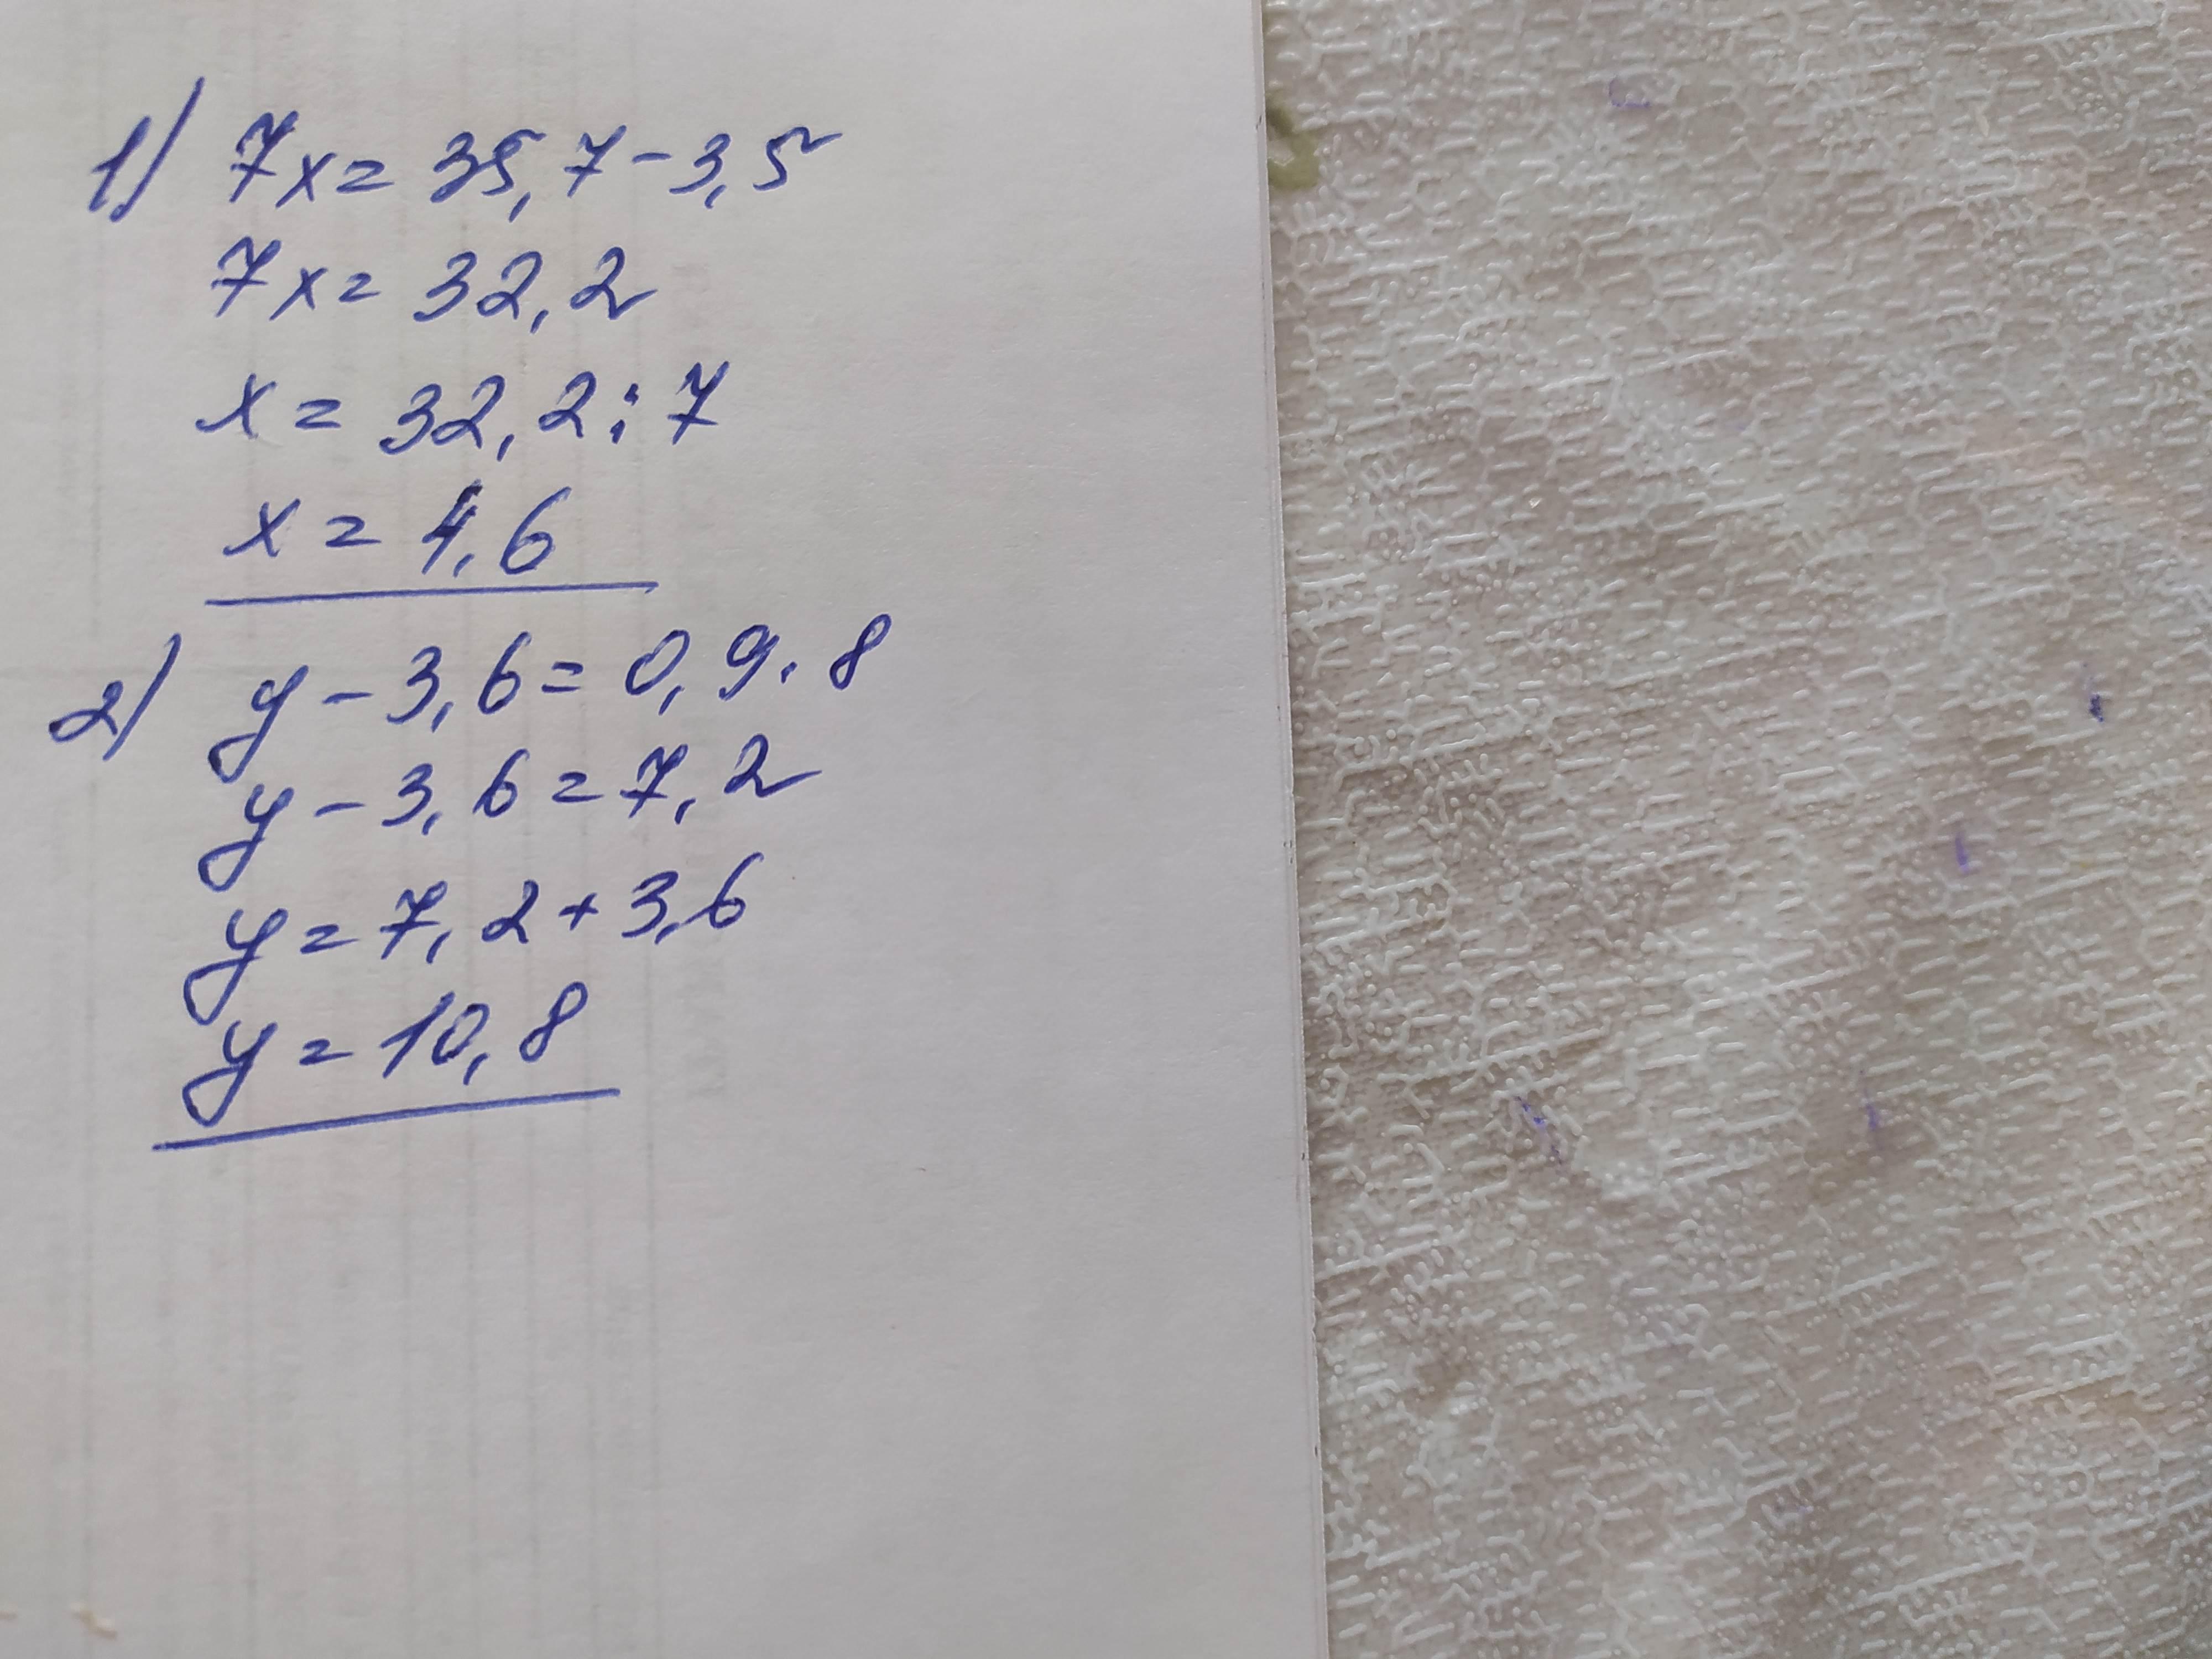 1) 7x = 35,7 - 3,5
7x = 32,2
x = 32,2 : 7
x = 4,6
2) y - 3,6 = 0,9 · 8
y - 3,6 = 7,2
y = 7,2 + 3,6
y = 10,8